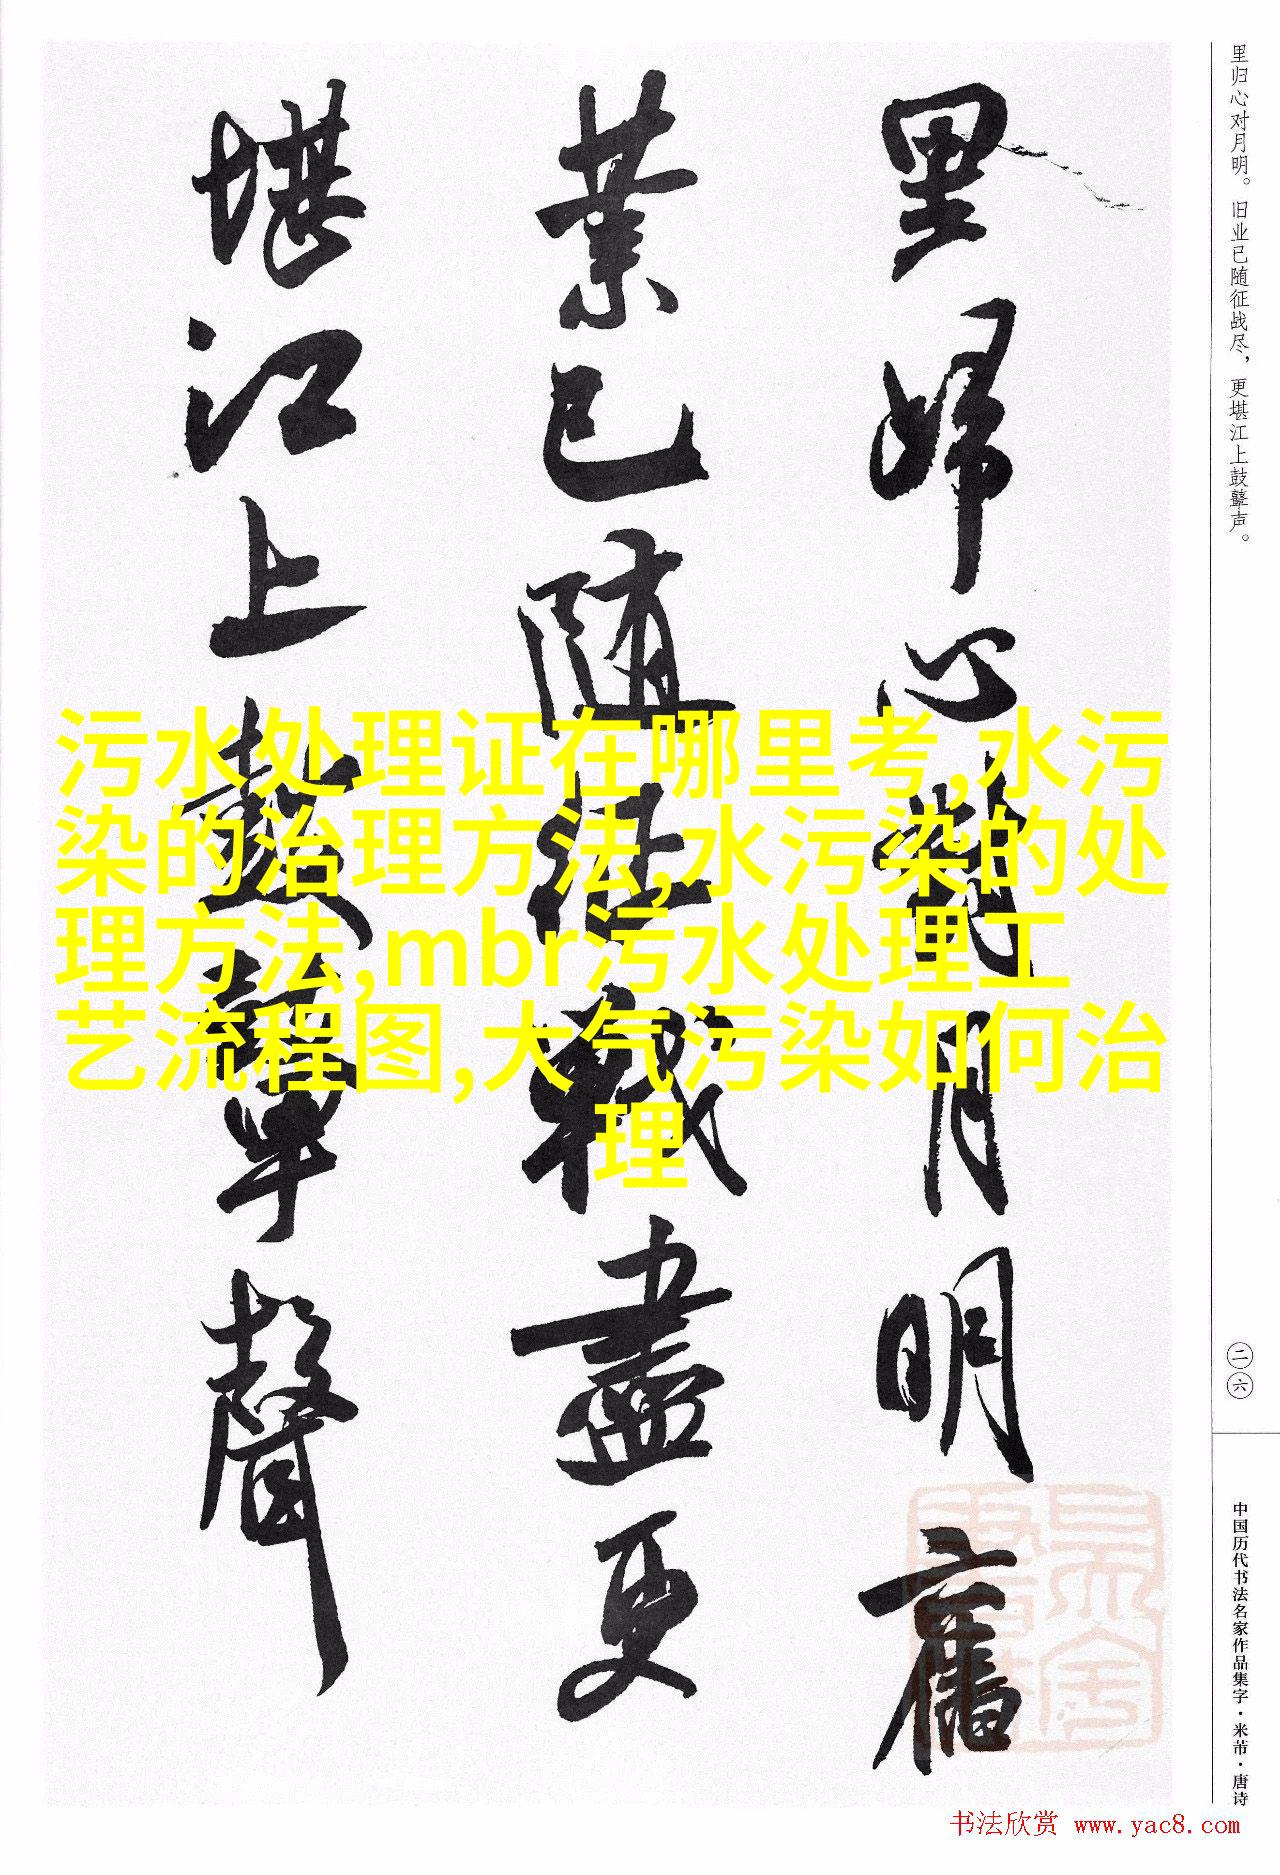 里归心对月明。旧业已随征战尽，更堪江上鼓鼙声。
二六
中国历代书法名家作品集字·米芾·唐诗
里歸心對月明舊
業已随征戰盡更
堪江上鼓鼙聲
污水处理证在哪里考,水污
染的治理方法,水污染的处
理方法,mbr污水处理工
艺流程图,大气污染如何治
理
书法欣赏 www.yac8.com